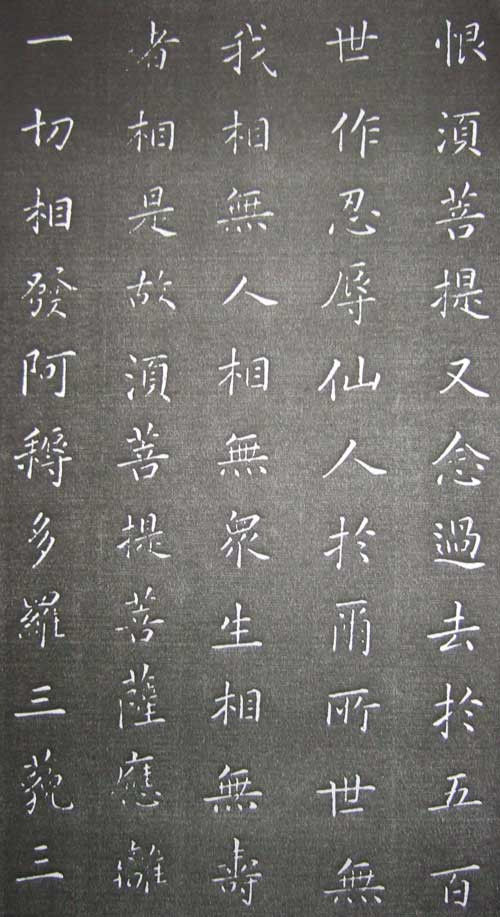 恨須菩提又念過去於五百
世作忍辱仙人於爾所世無
我相無人相無衆生相無壽
者相是故須菩提菩薩應離
一切相發阿耨多羅三藐三